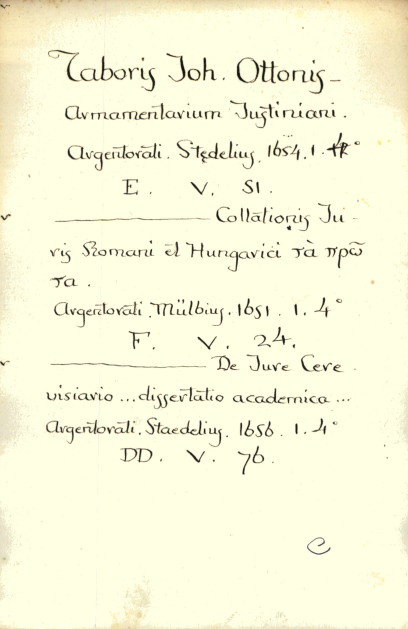 Taboris Joh. Ottonis –
Armamentarium Justiniani.
Argentorati. Stedelius. 1654. 1. 4°
E. V. 51.
——— Collationis Ju-
ris Romani et Hungarici τὰ πρῶ
τα.
Argentorati. Mülbius. 1651. 1. 4°
F. V. 24.
——— De Jure Cere
visiario ... dissertatio academica ...
Argentorati. Staedelius. 1656. 1. 4°
DD. V. 76.
C